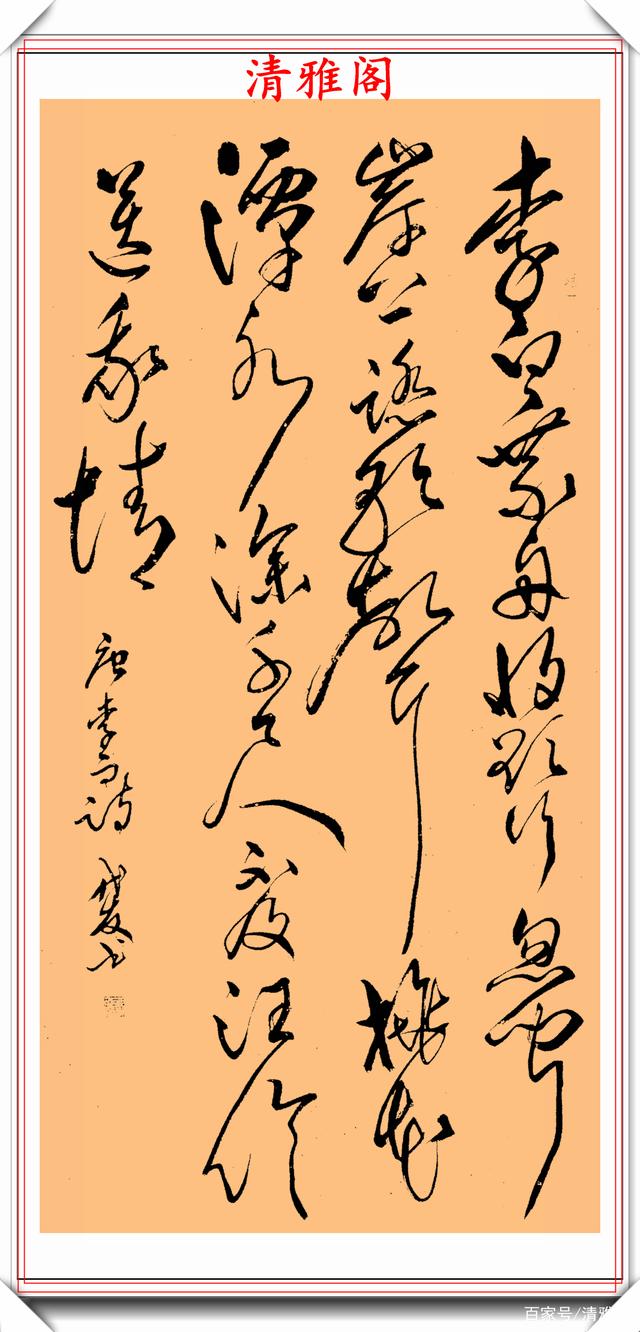 清雅阁
李白乘舟將欲行忽聞
岸上踏歌聲桃花
潭水深千尺不及汪倫
送我情
唐李白詩
書
百家号/清雅